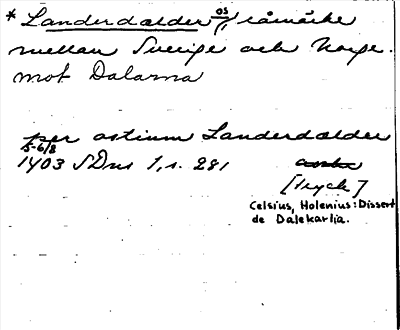 * Landerdælder os / råmärke
mellan Sverige och Norge.
mot Dalarna
per ostium Landerdælder
5-6/8
1403 SDns 1, s. 281
[Tryck]
Celsius, Holenius: Dissert
de Dalekarlia.